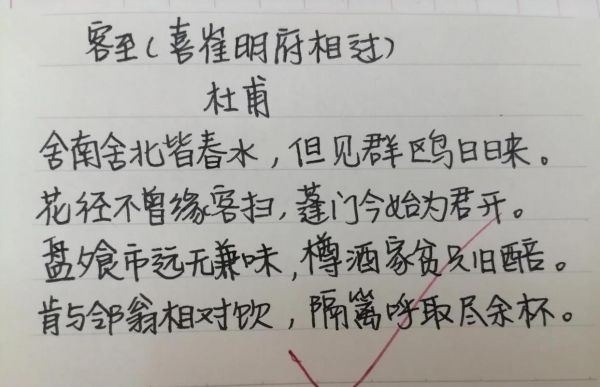 客至（喜崔明府相过）
杜甫
舍南舍北皆春水，但见群鸥日日来。
花径不曾缘客扫，蓬门今始为君开。
盘飧市远无兼味，樽酒家贫只旧醅。
肯与邻翁相对饮，隔篱呼取尽余杯。